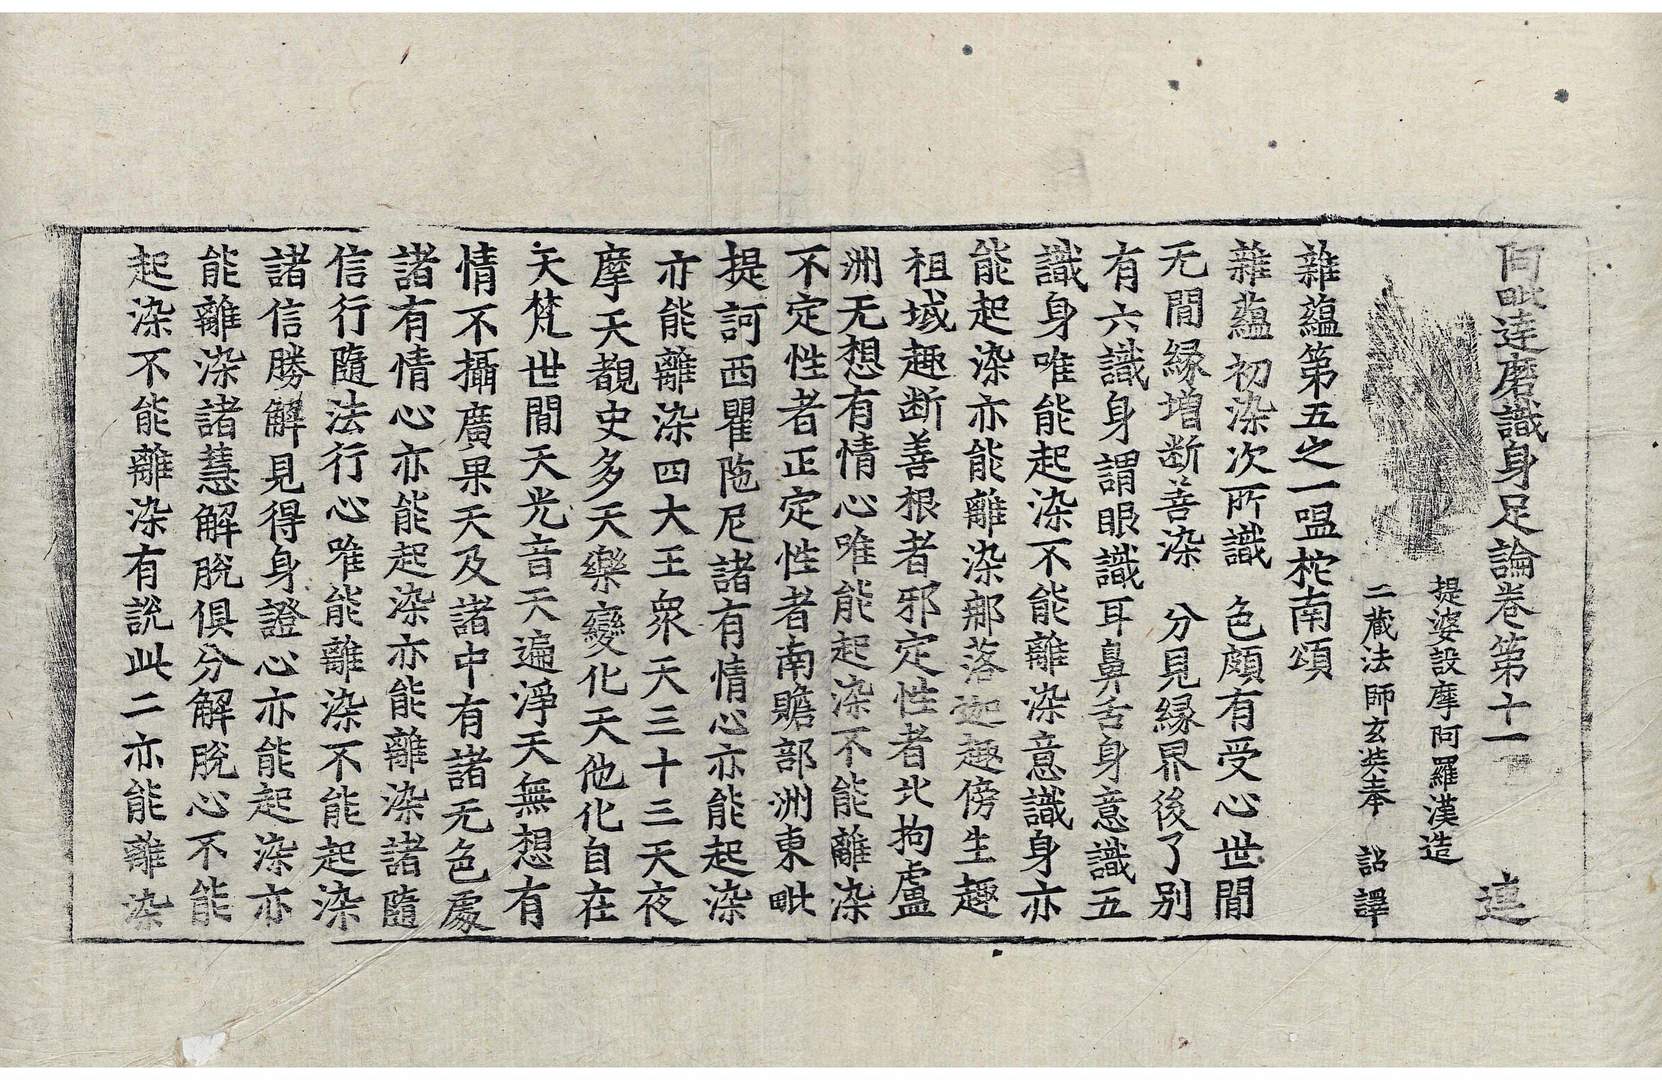 阿毗達磨識身足論卷第十一 達
提婆設摩阿羅漢造
三藏法師玄奘奉 詔譯
雜蘊第五之一嗢柁南頌
雜蘊初染次所識 色頗有受心世間
无間緣增斷善染 分見緣界後了別
有六識身謂眼識耳鼻舌身意識五
識身唯能起染不能離染意識身亦
能起染亦能離染那落迦趣傍生趣
祖域趣断善根者邪定性者北拘盧
洲无想有情心唯能起染不能離染
不定性者正定性者南贍部洲東毗
提訶西瞿陁尼諸有情心亦能起染
亦能離染四大王眾天三十三天夜
摩天覩史多天樂變化天他化自在
天梵世間天光音天遍淨天無想有
情不攝廣果天及諸中有諸无色處
諸有情心亦能起染亦能離染諸隨
信行隨法行心唯能離染不能起染
諸信勝解見得身證心亦能起染亦
能離染諸慧解脫俱分解脫心不能
起染不能離染有說此二亦能離染